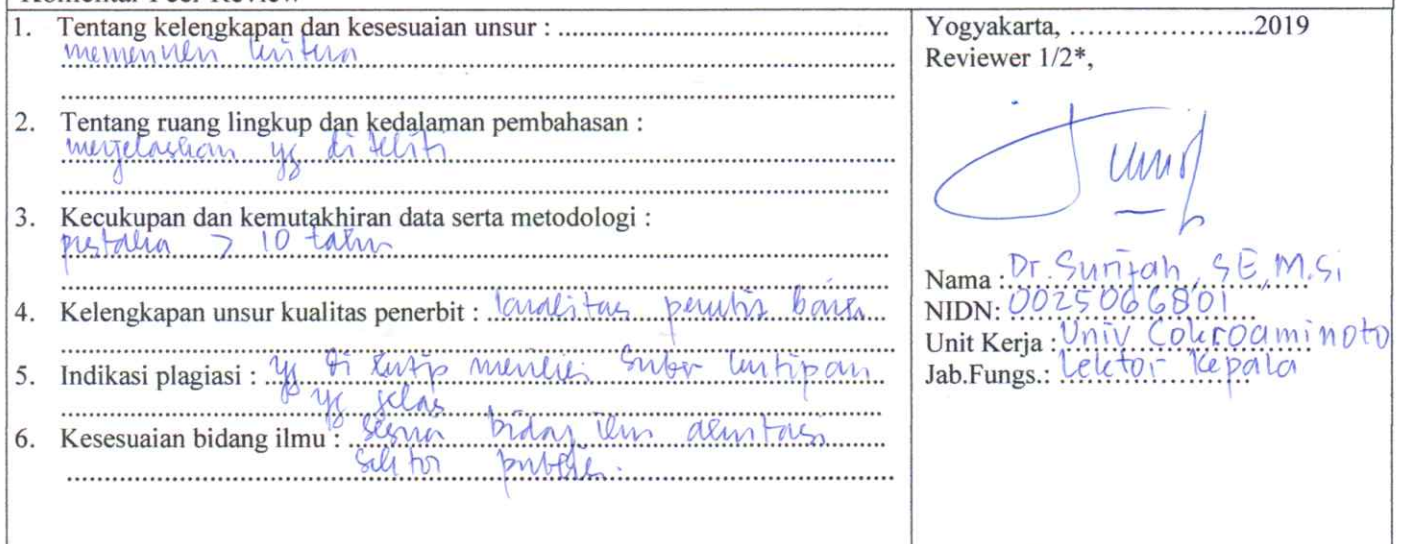 Komentar Peer Review
1. Tentang kelengkapan dan kesesuaian unsur : ................................................
memenuhi
2. Tentang ruang lingkup dan kedalaman pembahasan :
menjelaskan yg di teliti
3. Kecukupan dan kemutakhiran data serta metodologi :
pustaka > 10 tahun
4. Kelengkapan unsur kualitas penerbit : kualitas penerbit
5. Indikasi plagiasi : yg di kutip kutipan
yg jelas
6. Kesesuaian bidang ilmu : sesuai bidang ilmu akuntansi
sektor publik.
Yogyakarta, ......................2019
Reviewer 1/2*,
Nama : Dr. Surifah, SE, M.Si
NIDN: 0025066801
Unit Kerja : Univ Cokroaminoto
Jab.Fungs.: Lektor Kepala